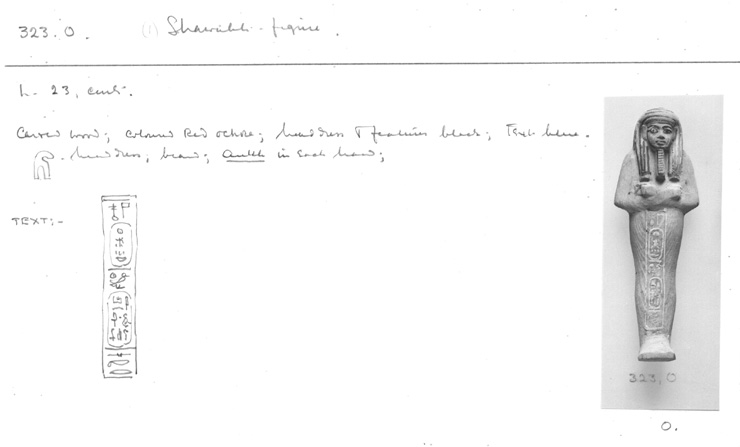 323.O. (1) Shawabti-figure.
h. 23, cent.
Carved wood; coloured Red ochre; headdress & features black; Text blue.
headdress, beard; ankh in each hand;
TEXT:-
323,O
O.